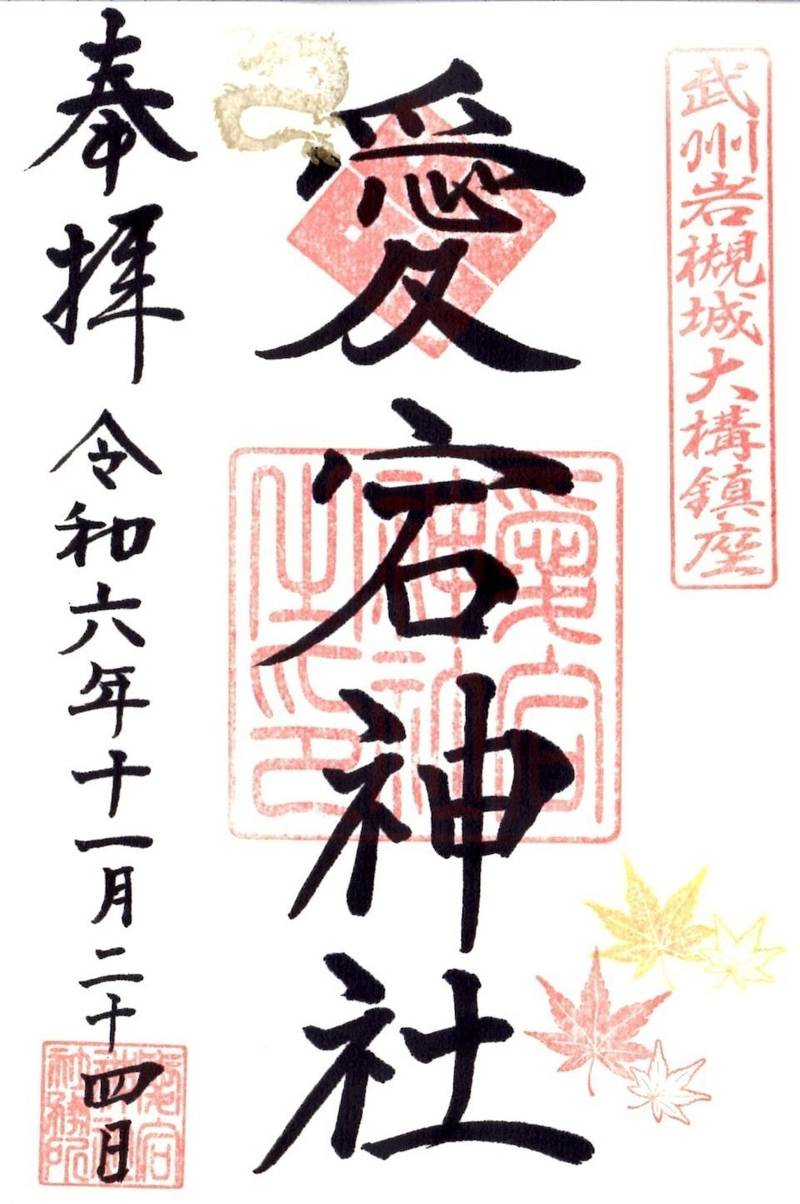 武州岩槻城大構鎮座
愛宕神社
愛宕神社之印
奉拝
令和六年十一月二十四日
愛宕神社社務所